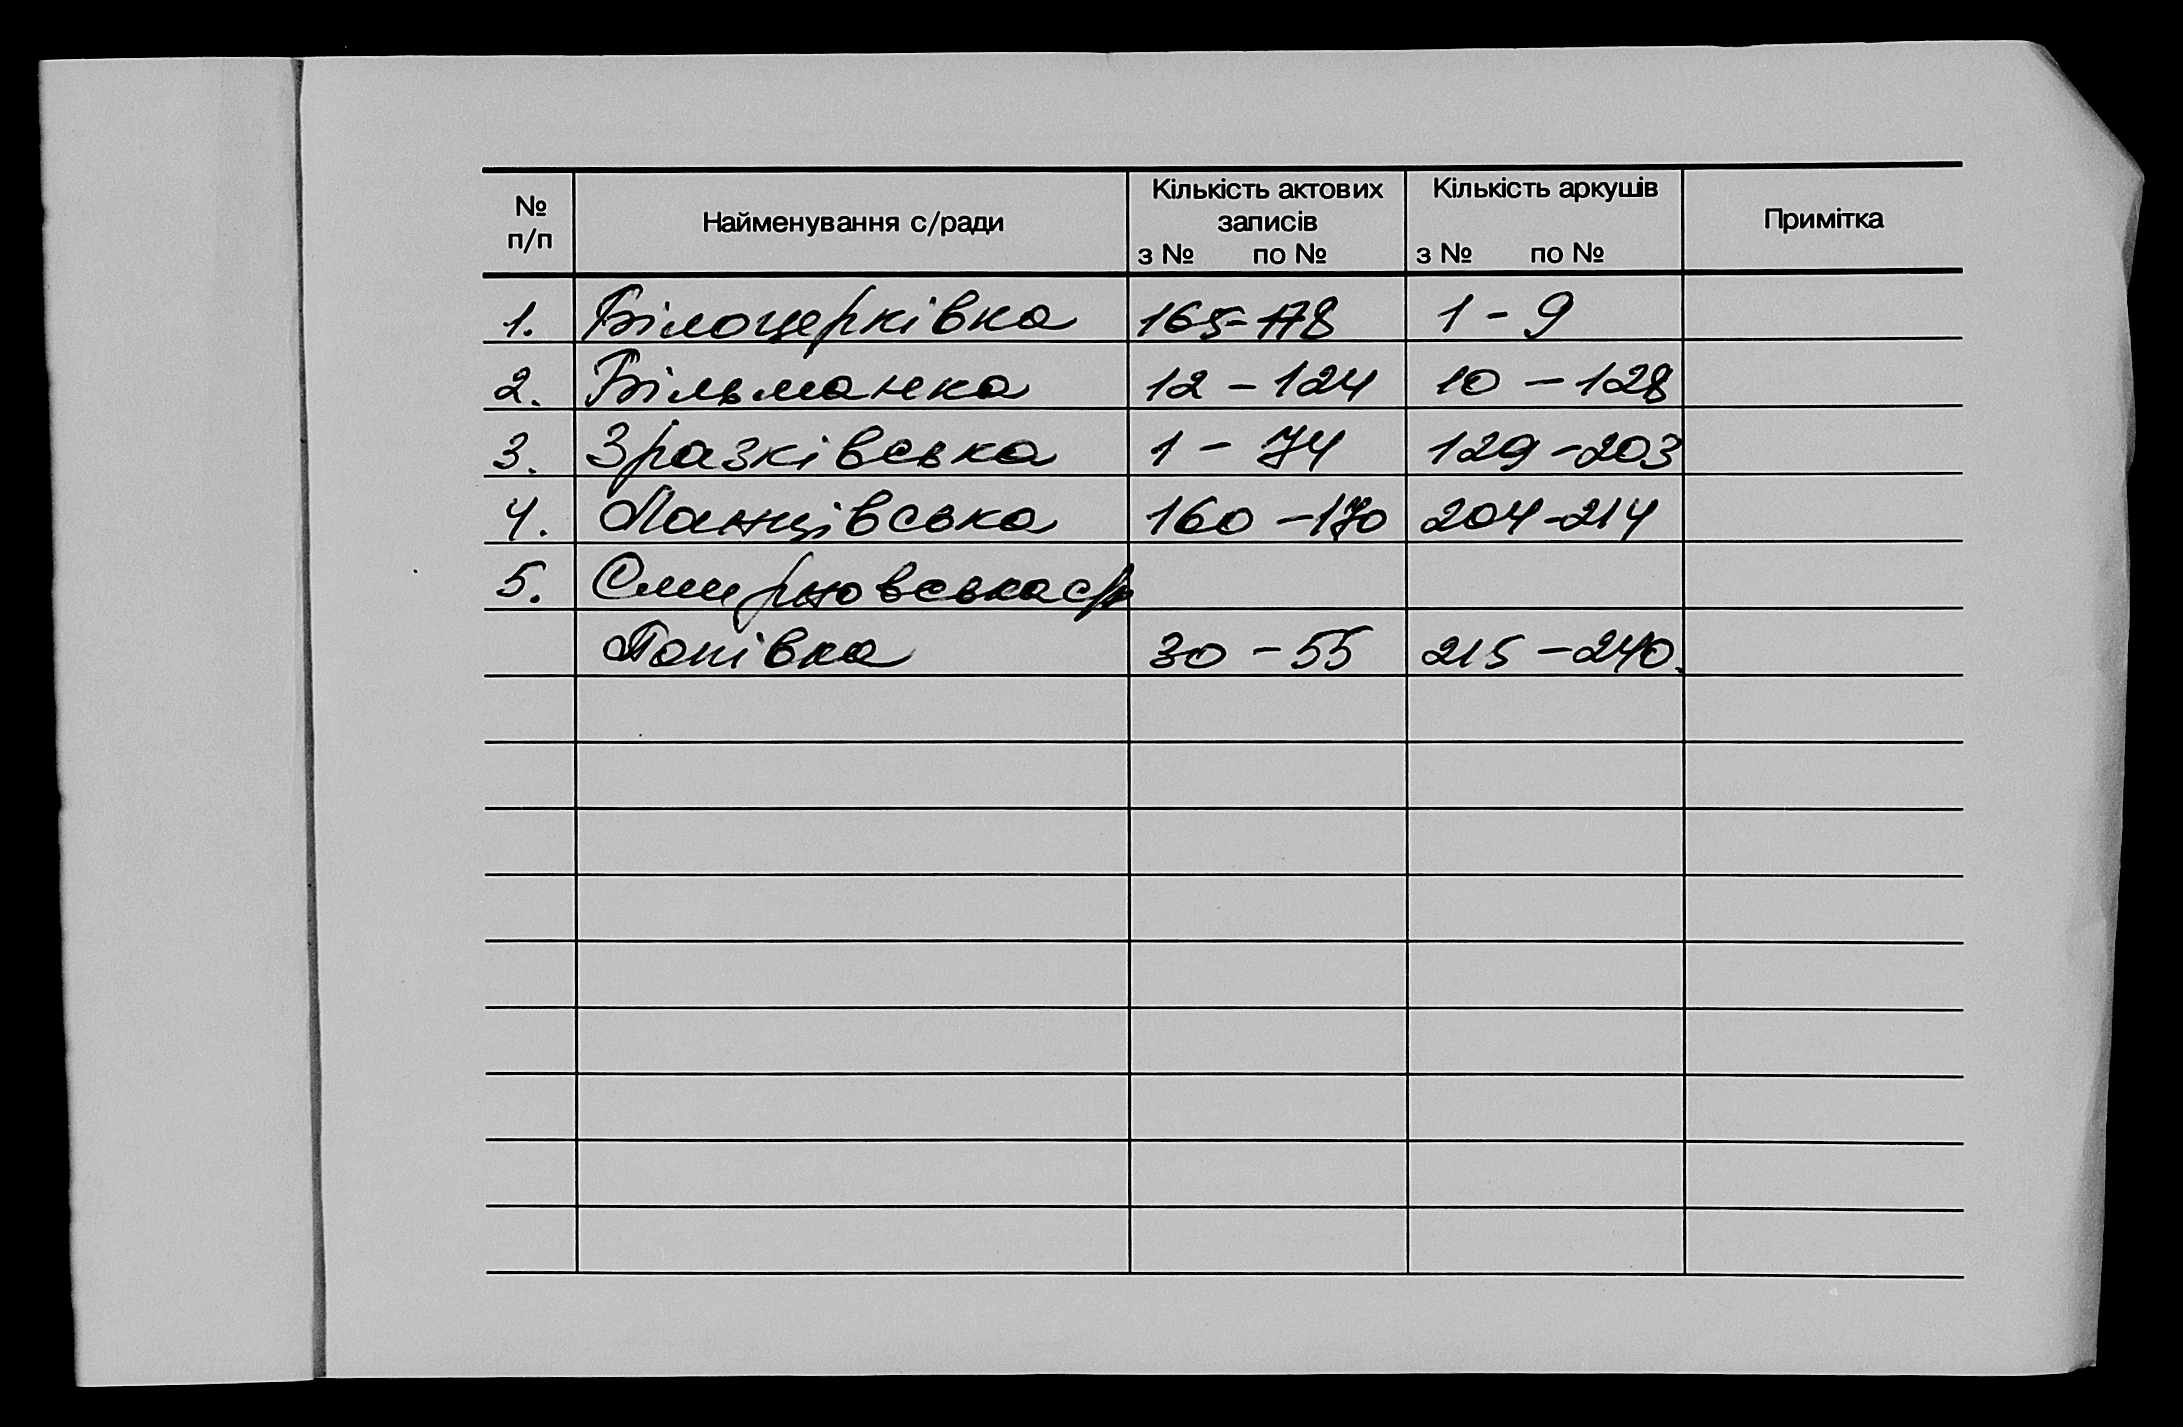 № п/п Найменування с/ради Кількість актових записів з № по № Кількість аркушів з № по № Примітка
1. Білоцерківка 165-178 1-9
2. Більманка 12-124 10-128
3. Зразківська 1-74 129-203
4. Ланцівська 160-170 204-214
5. Смирновська с/р
Попівка 30-55 215-240.